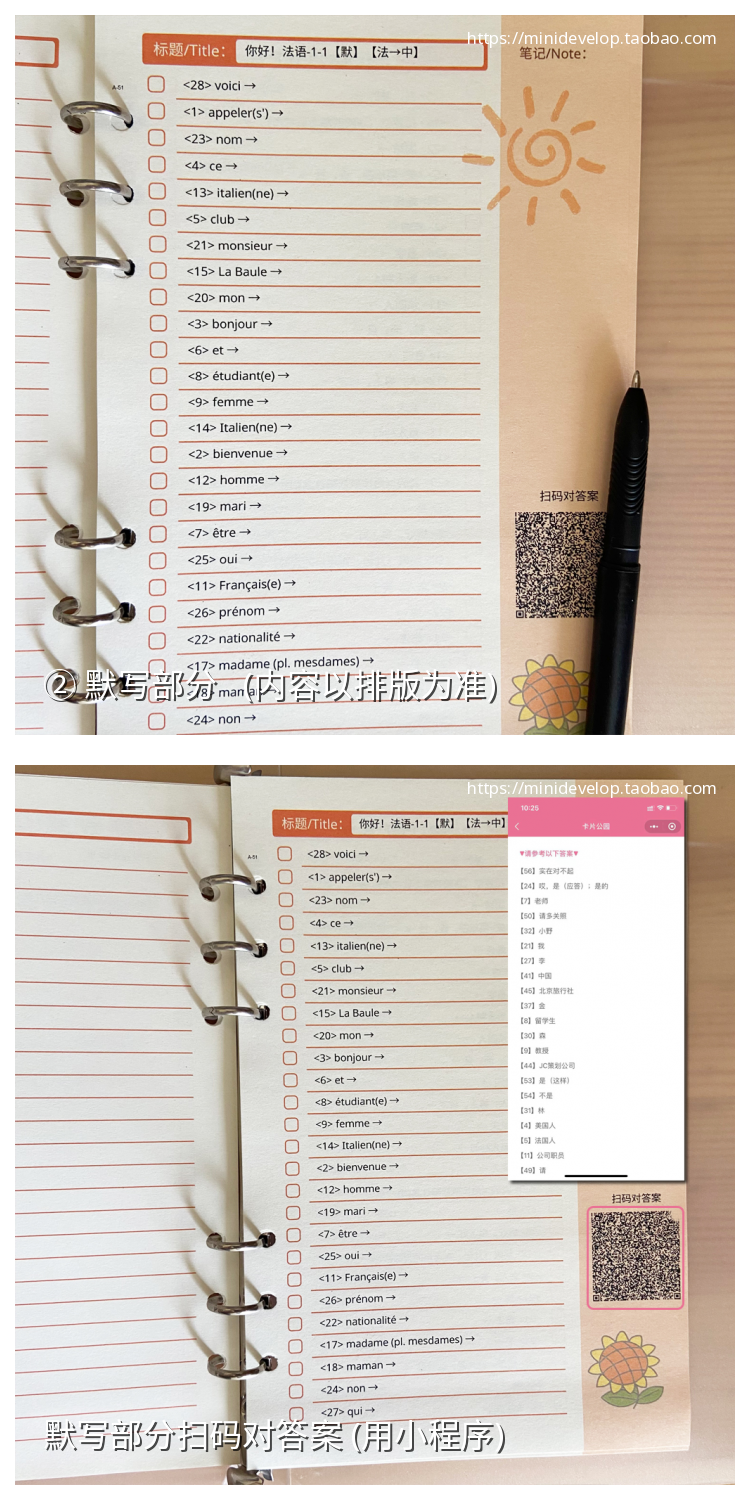 https://minidevelop.taobao.com
标题/Title:
你好！法语-1-1【默】【法→中】
笔记/Note:
A-51
<28> voici →
<1> appeler(s') →
<23> nom →
<4> ce →
<13> italien(ne) →
<5> club →
<21> monsieur →
<15> La Baule →
<20> mon →
<3> bonjour →
<6> et →
<8> étudiant(e) →
<9> femme →
<14> Italien(ne) →
<2> bienvenue →
<12> homme →
<19> mari →
<7> être →
<25> oui →
<11> Français(e) →
<26> prénom →
<22> nationalité →
<17> madame (pl. mesdames) →
<24> non →
扫码对答案
② 默写部分 （内容以排版为准）
https://minidevelop.taobao.com
标题/Title:
你好！法语-1-1【默】【法→中】
A-51
<28> voici →
<1> appeler(s') →
<23> nom →
<4> ce →
<13> italien(ne) →
<5> club →
<21> monsieur →
<15> La Baule →
<20> mon →
<3> bonjour →
<6> et →
<8> étudiant(e) →
<9> femme →
<14> Italien(ne) →
<2> bienvenue →
<12> homme →
<19> mari →
<7> être →
<25> oui →
<11> Français(e) →
<26> prénom →
<22> nationalité →
<17> madame (pl. mesdames) →
<18> maman →
<24> non →
<27> qui →
10:25
卡片公园
♥请参考以下答案♥
【56】实在对不起
【24】哎，是（应答）；是的
【7】老师
【50】请多关照
【32】小野
【21】我
【27】李
【41】中国
【45】北京旅行社
【37】金
【8】留学生
【30】森
【9】教授
【44】JC策划公司
【53】是（这样）
【54】不是
【31】林
【4】美国人
【5】法国人
【11】公司职员
【49】请
扫码对答案
默写部分扫码对答案 (用小程序)